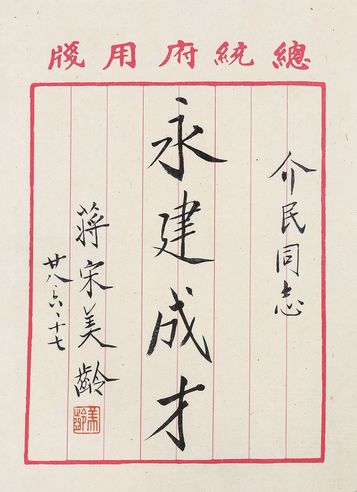 總統府用牋
介民同志
永建成才
蔣宋美齡
廿八、六、十七
美齡